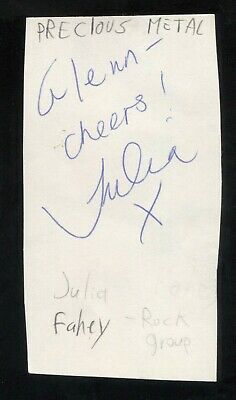 PRECIOUS METAL
Glenn-
cheers!
Julia
X
Julia
Fahey - Rock
group